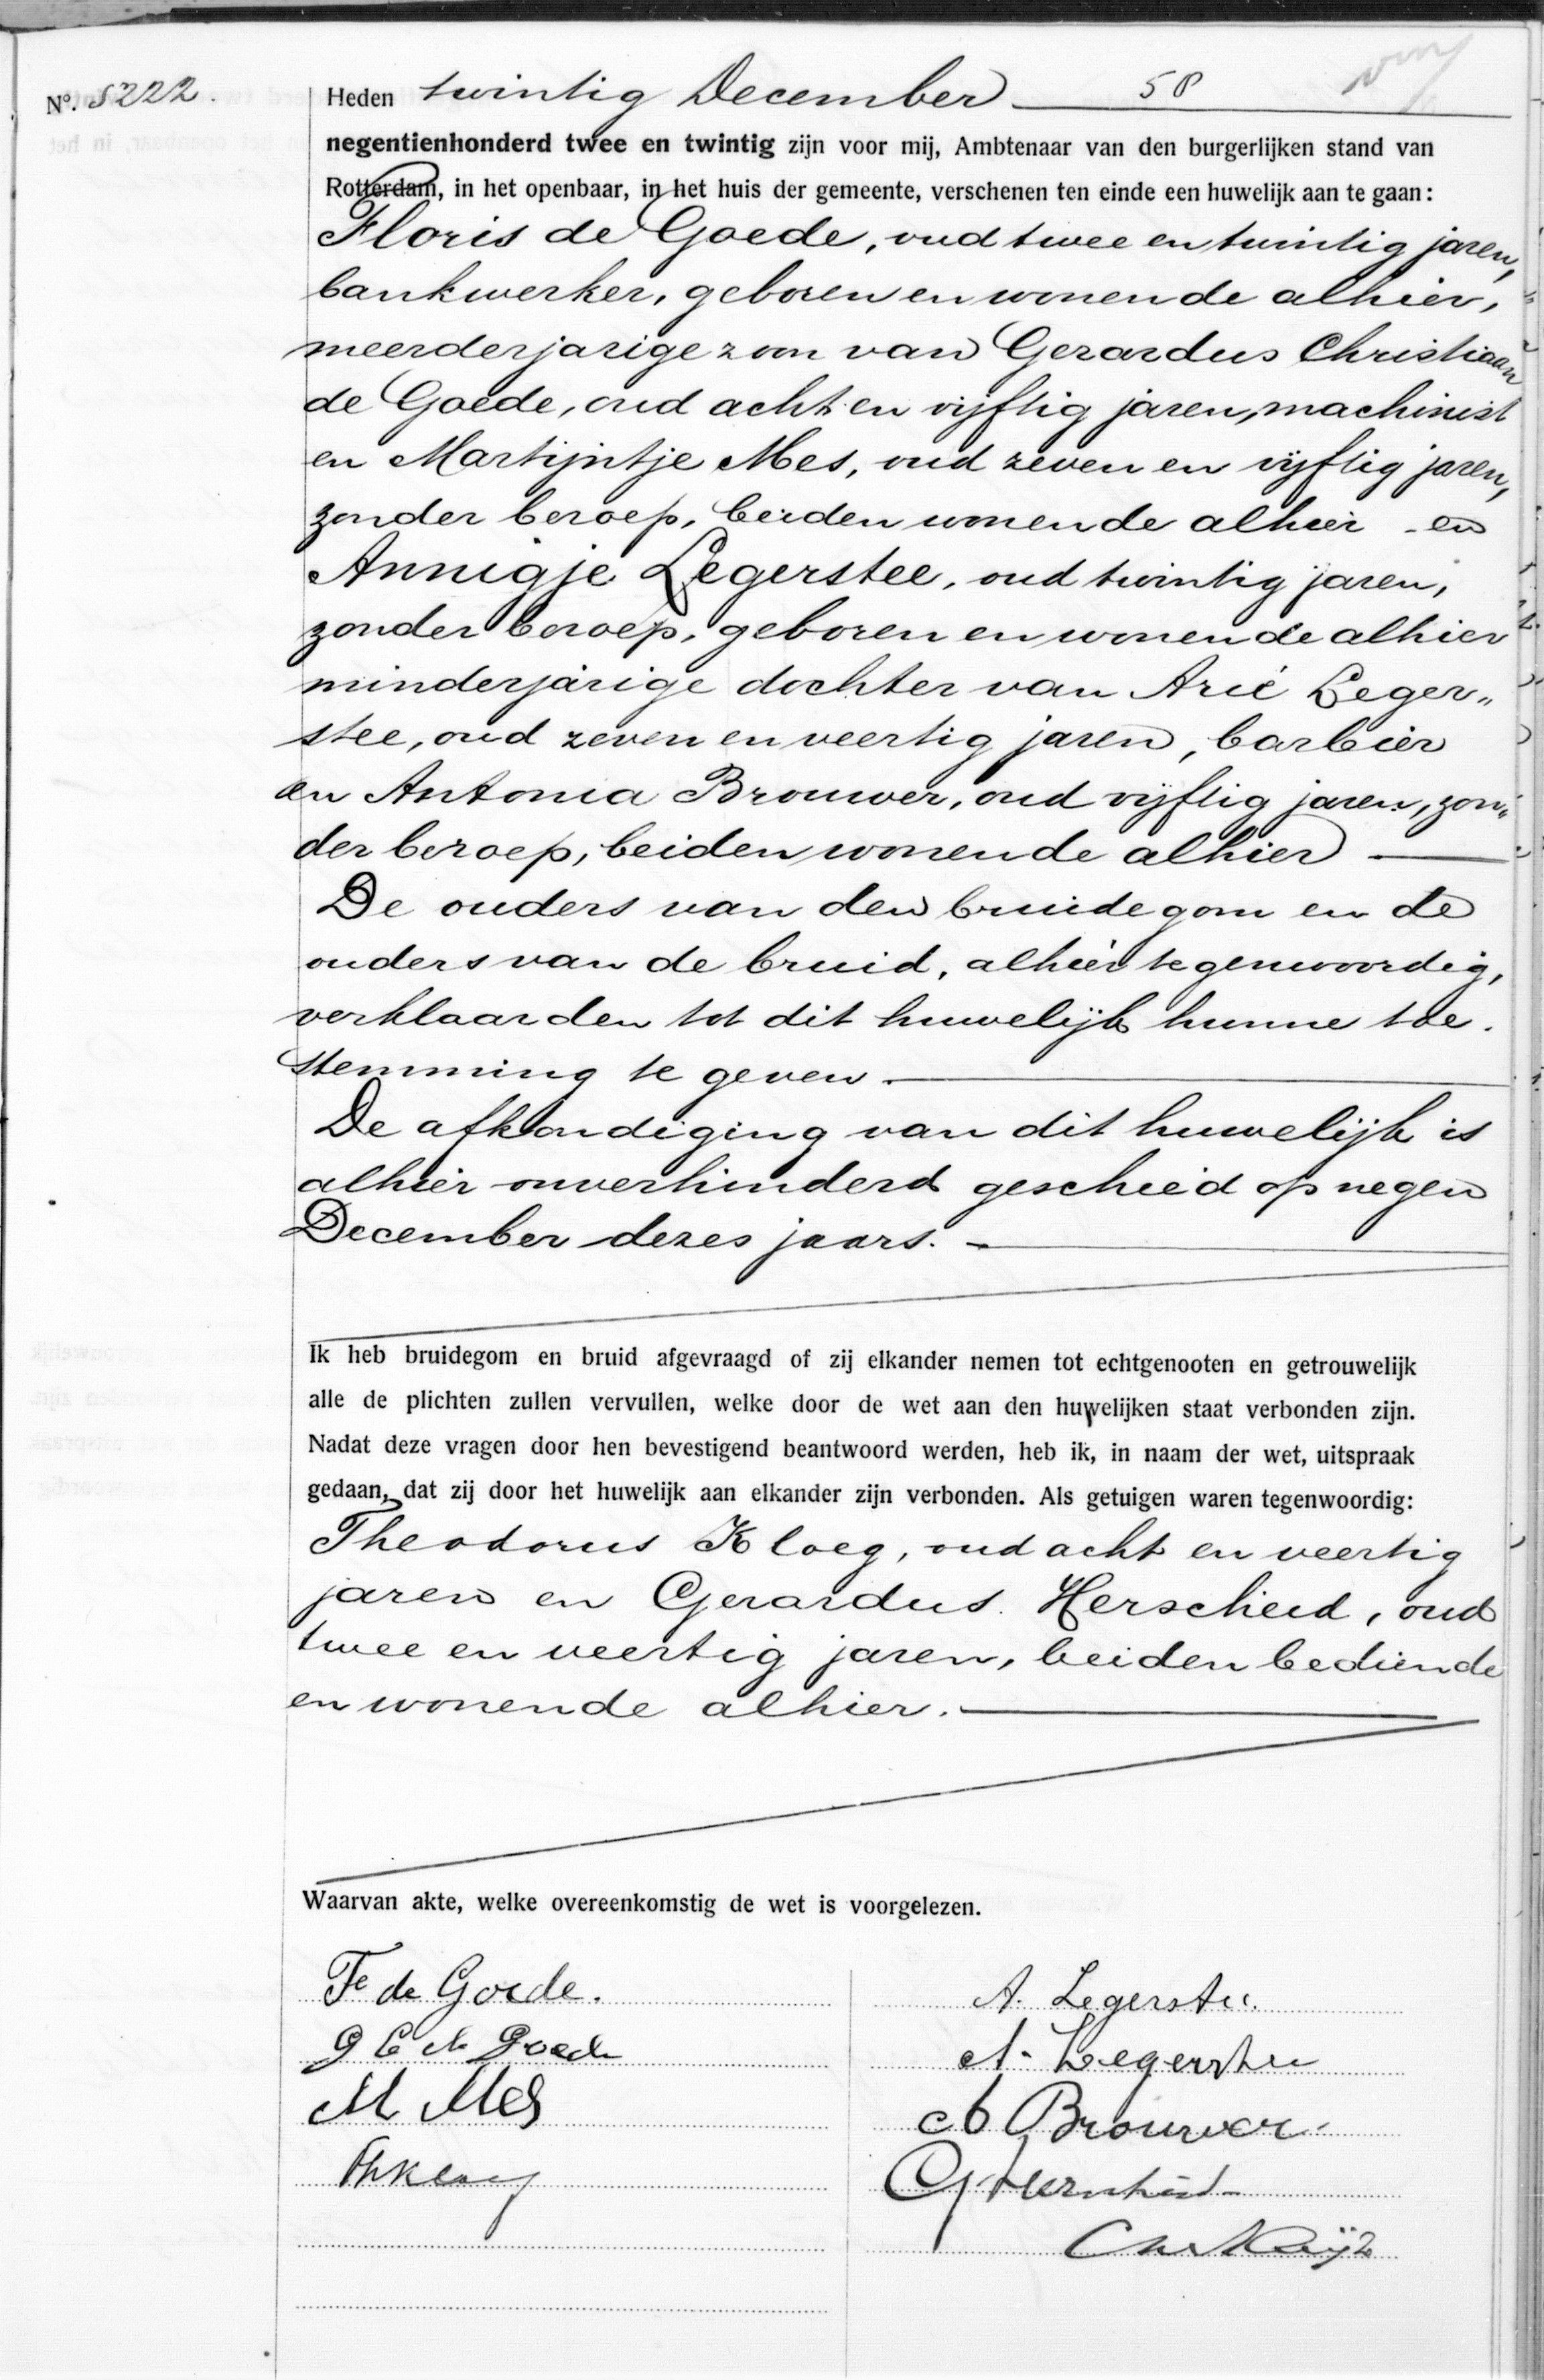 No. 5222.
Heden twintig December 58
negentienhonderd twee en twintig zijn voor mij, Ambtenaar van den burgerlijken stand van
Rotterdam, in het openbaar, in het huis der gemeente, verschenen ten einde een huwelijk aan te gaan:
Floris de Goede, oud twee en twintig jaren,
bankwerker, geboren en wonende alhier,
meerderjarige zoon van Gerardus Christiaan
de Goede, oud acht en vijftig jaren, machinist
en Martijntje Mes, oud zeven en vijftig jaren,
zonder beroep, beiden wonende alhier - en
Annigje Legerstee, oud twintig jaren,
zonder beroep, geboren en wonende alhier
minderjarige dochter van Arie Leger„
stee, oud zeven en veertig jaren, barbier
en Antonia Brouwer, oud vijftig jaren, zon„
der beroep, beiden wonende alhier
De ouders van den bruidegom en de
ouders van de bruid, alhier tegenwoordig,
verklaarden tot dit huwelijk hunne toe.
stemming te geven.
De afkondiging van dit huwelijk is
alhier onverhinderd geschied op negen
December dezes jaars.
Ik heb bruidegom en bruid afgevraagd of zij elkander nemen tot echtgenooten en getrouwelijk
alle de plichten zullen vervullen, welke door de wet aan den huwelijken staat verbonden zijn.
Nadat deze vragen door hen bevestigend beantwoord werden, heb ik, in naam der wet, uitspraak
gedaan, dat zij door het huwelijk aan elkander zijn verbonden. Als getuigen waren tegenwoordig:
Theodorus Kloeg, oud acht en veertig
jaren en Gerardus Herscheid, oud
twee en veertig jaren, beiden bediende
en wonende alhier.
Waarvan akte, welke overeenkomstig de wet is voorgelezen.
Fs de Goede.
A. Legerstee
G C de Goede
A. Legerstee
M Mes
A Brouwer
Th Kloeg
G Herscheid